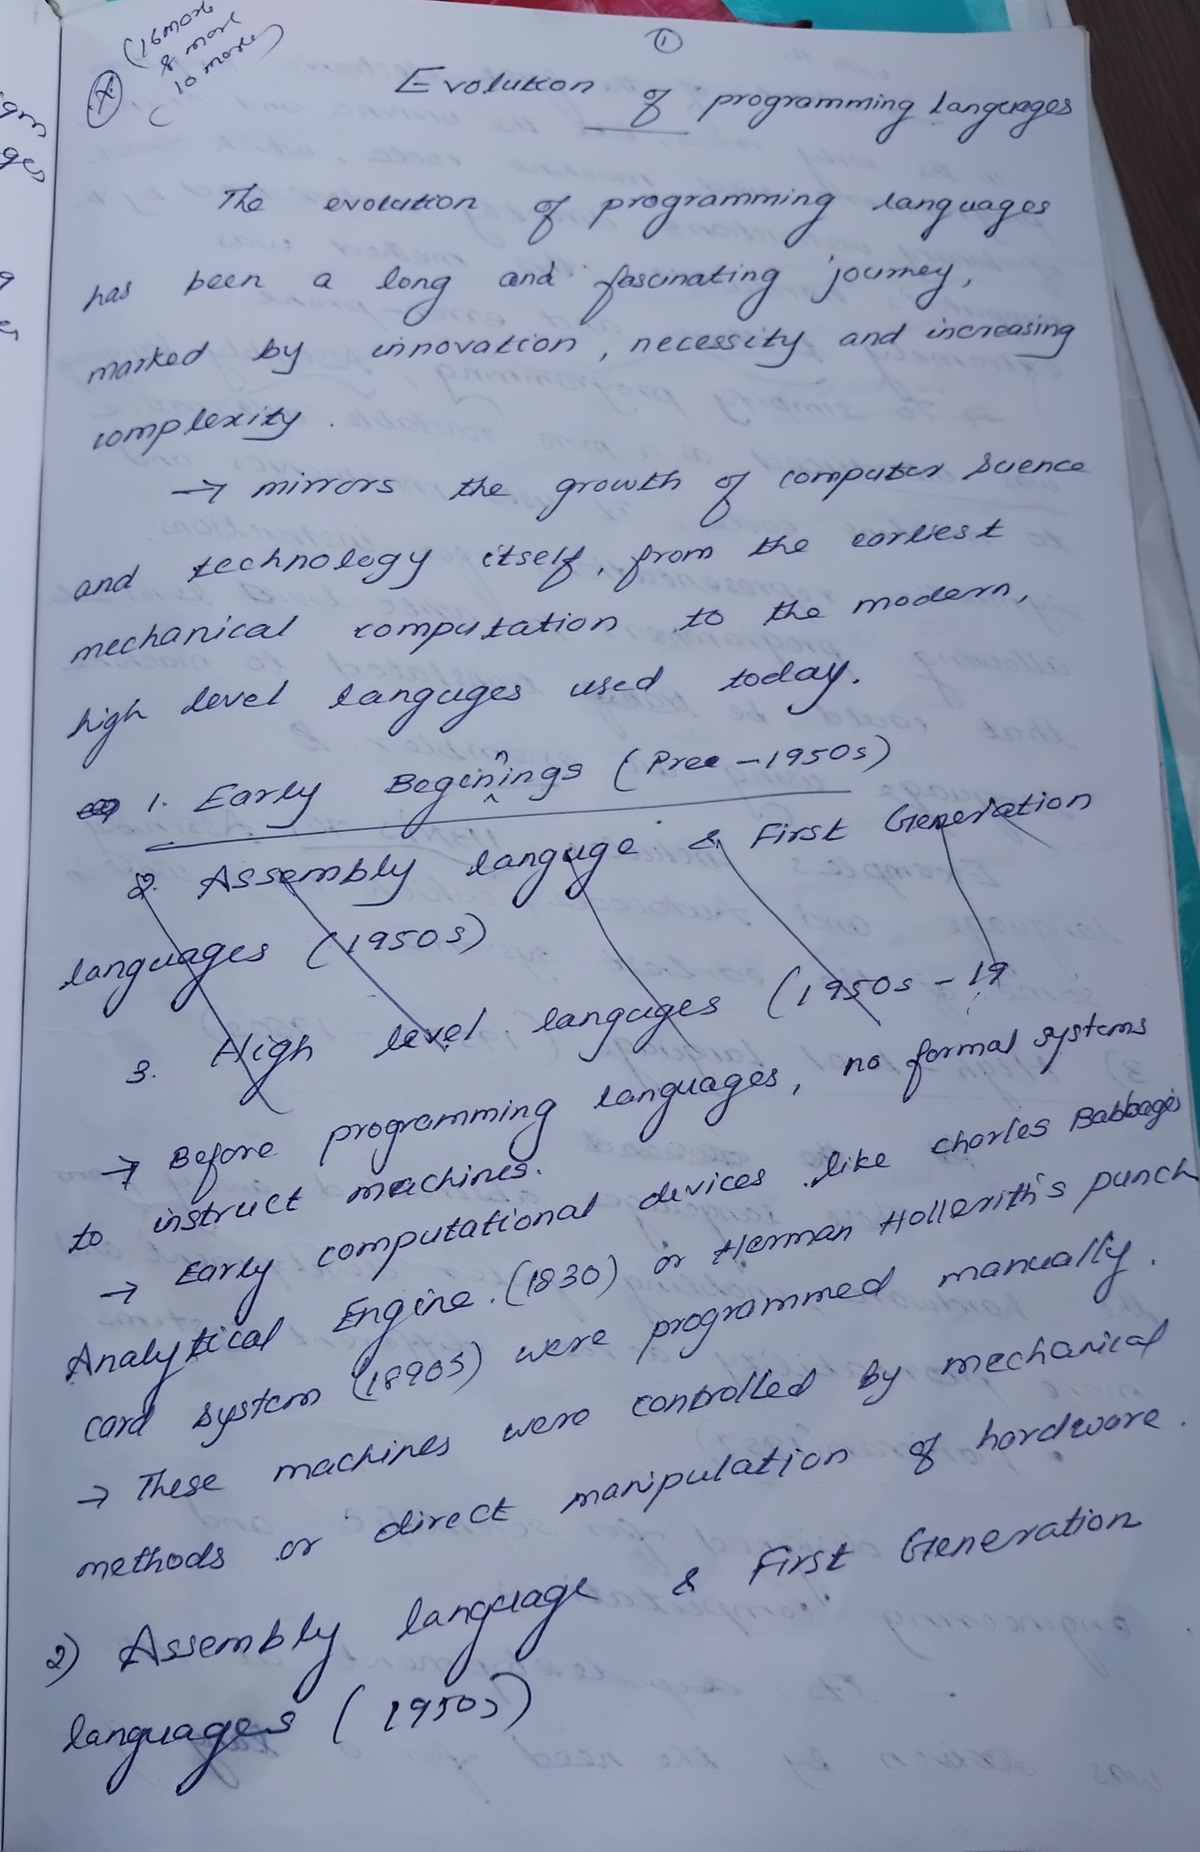 (16 mor
8 mor
( 10 more)
1
Evolution of programming Languages
The evolution of programming languages
has been a long and fascinating journey,
marked by innovation, necessity and increasing
complexity.
→ mirrors the growth of computer Science
and technology itself, from the earliest
mechanical computation to the modern,
high level languges used today.
1. Early Beginnings (Pree - 1950s)
2. Assembly languge & First Generation
languages (1950s)
3. High level languges (1950s - 19
→ Before programming languages, no formal systems
to instruct machines.
→ Early computational devices like Charles Babbage's
Analytical Engine. (1830) or Herman Hollerith's punch
card system (1890s) were programmed manually.
→ These machines were controlled by mechanical
methods or direct manipulation of hardware.
2) Assembly language & First Generation
languages (1950s)